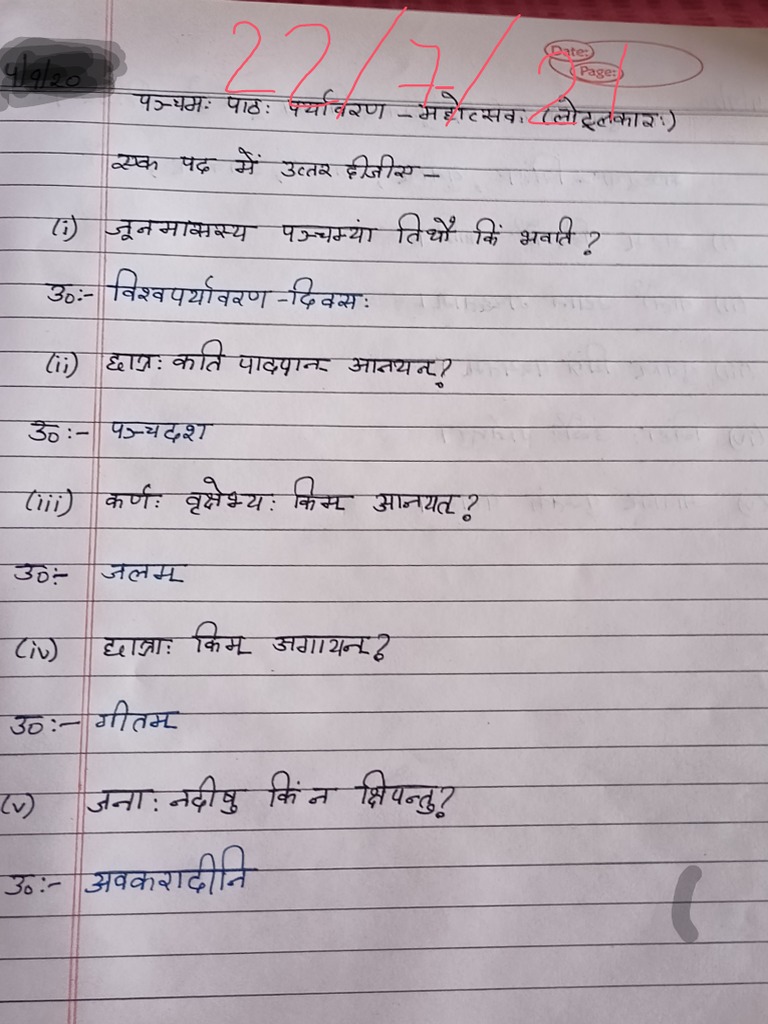 22/7/21
Date:
Page:
4/9/20
पञ्चमः पाठः पर्यावरण - महोत्सवः (लोट्लकारः)
एक पद में उत्तर दीजीए -
(i) जूनमासस्य पञ्चम्यां तिथौ किं भवति ?
उ०:- विश्वपर्यावरण - दिवसः
(ii) छात्रः कति पादपान् आनयन् ?
उ०:- पञ्चदश
(iii) कर्णः वृक्षेभ्यः किम् आनयत् ?
उ०:- जलम्
(iv) छात्राः किम् अगायन् ?
उ०:- गीतम्
(v) जनाः नदीषु किं न क्षिपन्तु ?
उ०:- अवकरादीनि